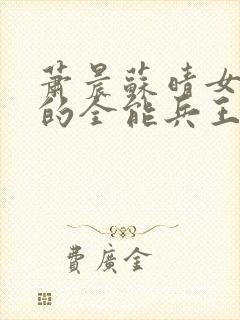 蕭晨蘇晴女
的全能兵王
費廣金